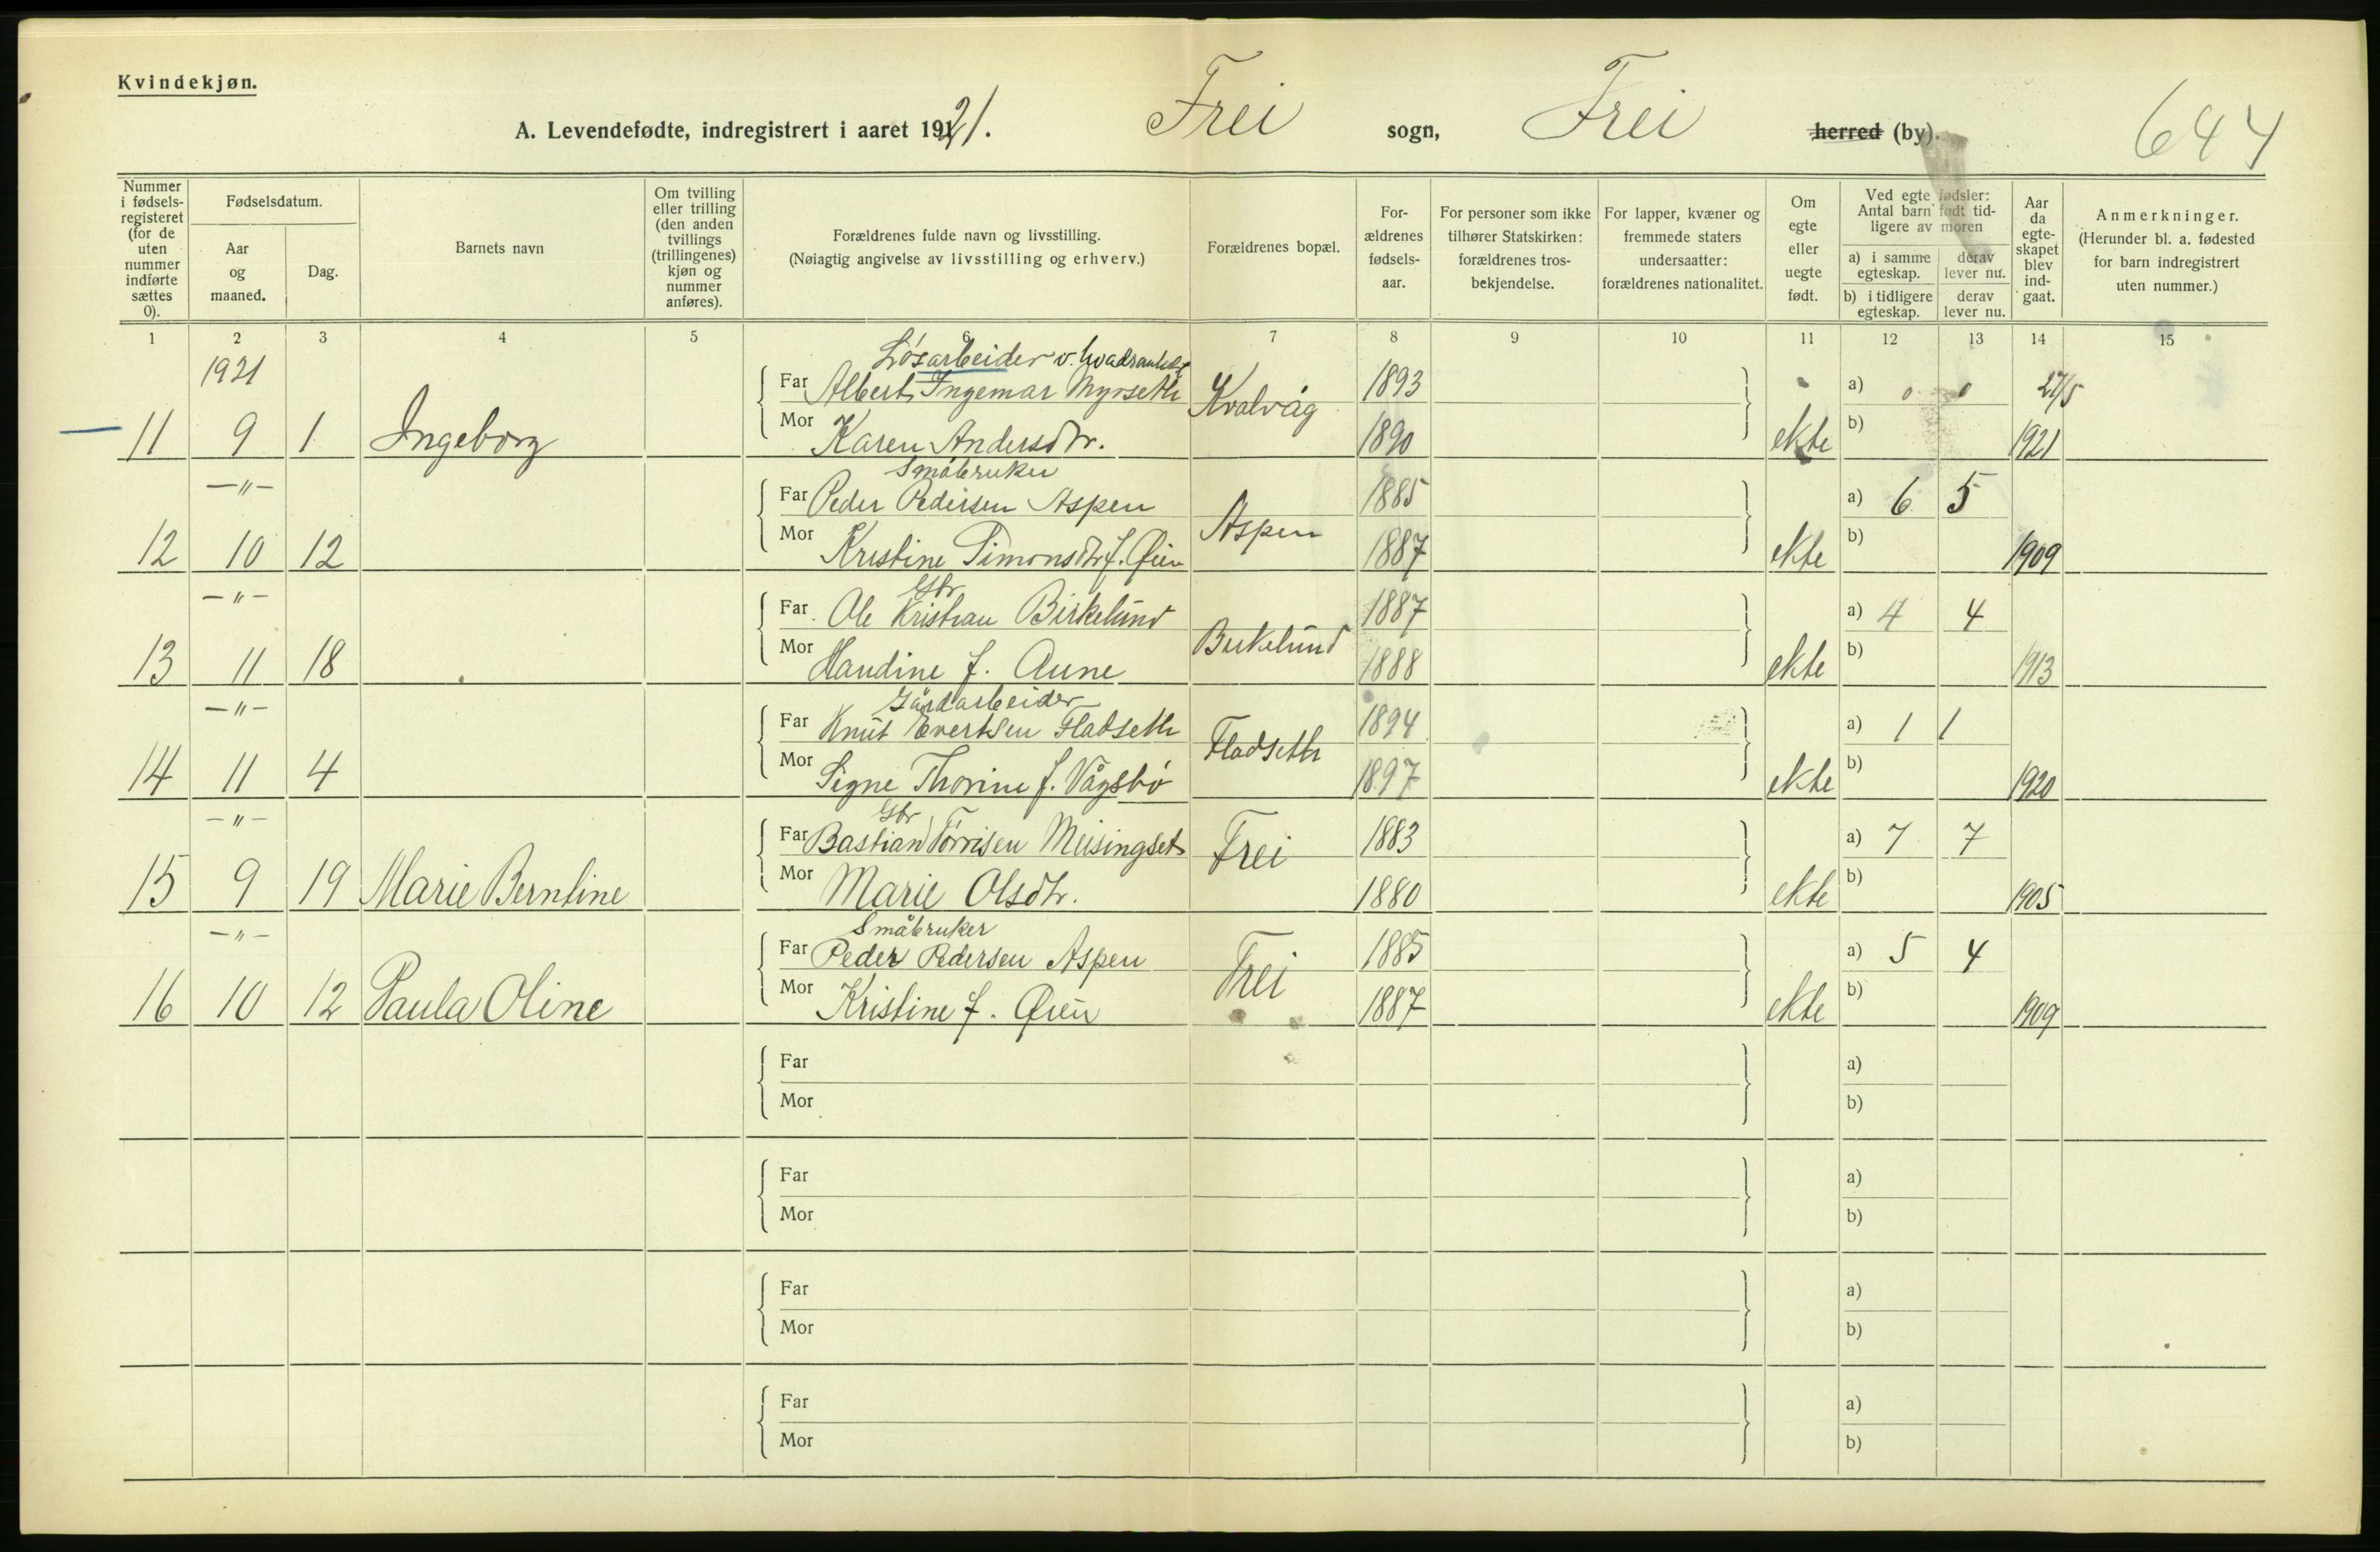 Kvindekjøn.
A. Levendefødte, indregistrert i aaret 1921. Frei sogn, Frei herred (by). 644
Nummer i fødsels-registeret (for de uten nummer indførte sættes 0).
Fødselsdatum.
Aar og maaned.
Dag.
Barnets navn
Om tvilling eller trilling (den anden tvillings (trillingenes) kjøn og nummer anføres).
Forældrenes fulde navn og livsstilling.
(Nøiagtig angivelse av livsstilling og erhverv.)
Forældrenes bopæl.
For-ældrenes fødsels-aar.
For personer som ikke tilhører Statskirken: forældrenes tros-bekjendelse.
For lapper, kvæner og fremmede staters undersaatter: forældrenes nationalitet.
Om egte eller uegte født.
Ved egte fødsler: Antal barn født tid-ligere av moren
a) i samme egteskap. derav lever nu.
b) i tidligere egteskap. derav lever nu.
Aar da egte-skapet blev ind-gaat.
Anmerkninger.
(Herunder bl. a. fødested for barn indregistrert uten nummer.)
1 2 3 4 5 6 7 8 9 10 11 12 13 14 15
1921 Løsarbeider v.
Far Albert Ingemar Myrseth Kvalvåg 1893 a) 0 0 27/5
11 9 1 Ingeborg Mor Karen Andersdtr. 1890 ekte b) 1921
—"— Småbruker
Far Peder Pedersen Aspen Aspen 1885 a) 6 5
12 10 12 Mor Kristine Simonsdtr f. Øien 1887 ekte b) 1909
—"— Gbr
Far Ole Kristian Birkelund Birkelund 1887 a) 4 4
13 11 18 Mor Haudine f. Aune 1888 ekte b) 1913
—"— Gårdarbeider
Far Knut Evertsen Fladseth Fladseth 1894 a) 1 1
14 11 4 Mor Signe Thorine f. Vågsbø 1897 ekte b) 1920
—"— Gbr
Far Bastian Tørrisen Meisingset Frei 1883 a) 7 7
15 9 19 Marie Berntine Mor Marie Olsdtr. 1880 ekte b) 1905
—"— Småbruker
Far Peder Pedersen Aspen Frei 1885 a) 5 4
16 10 12 Paula Oline Mor Kristine f. Øien 1887 ekte b) 1909
Far a)
Mor b)
Far a)
Mor b)
Far a)
Mor b)
Far a)
Mor b)